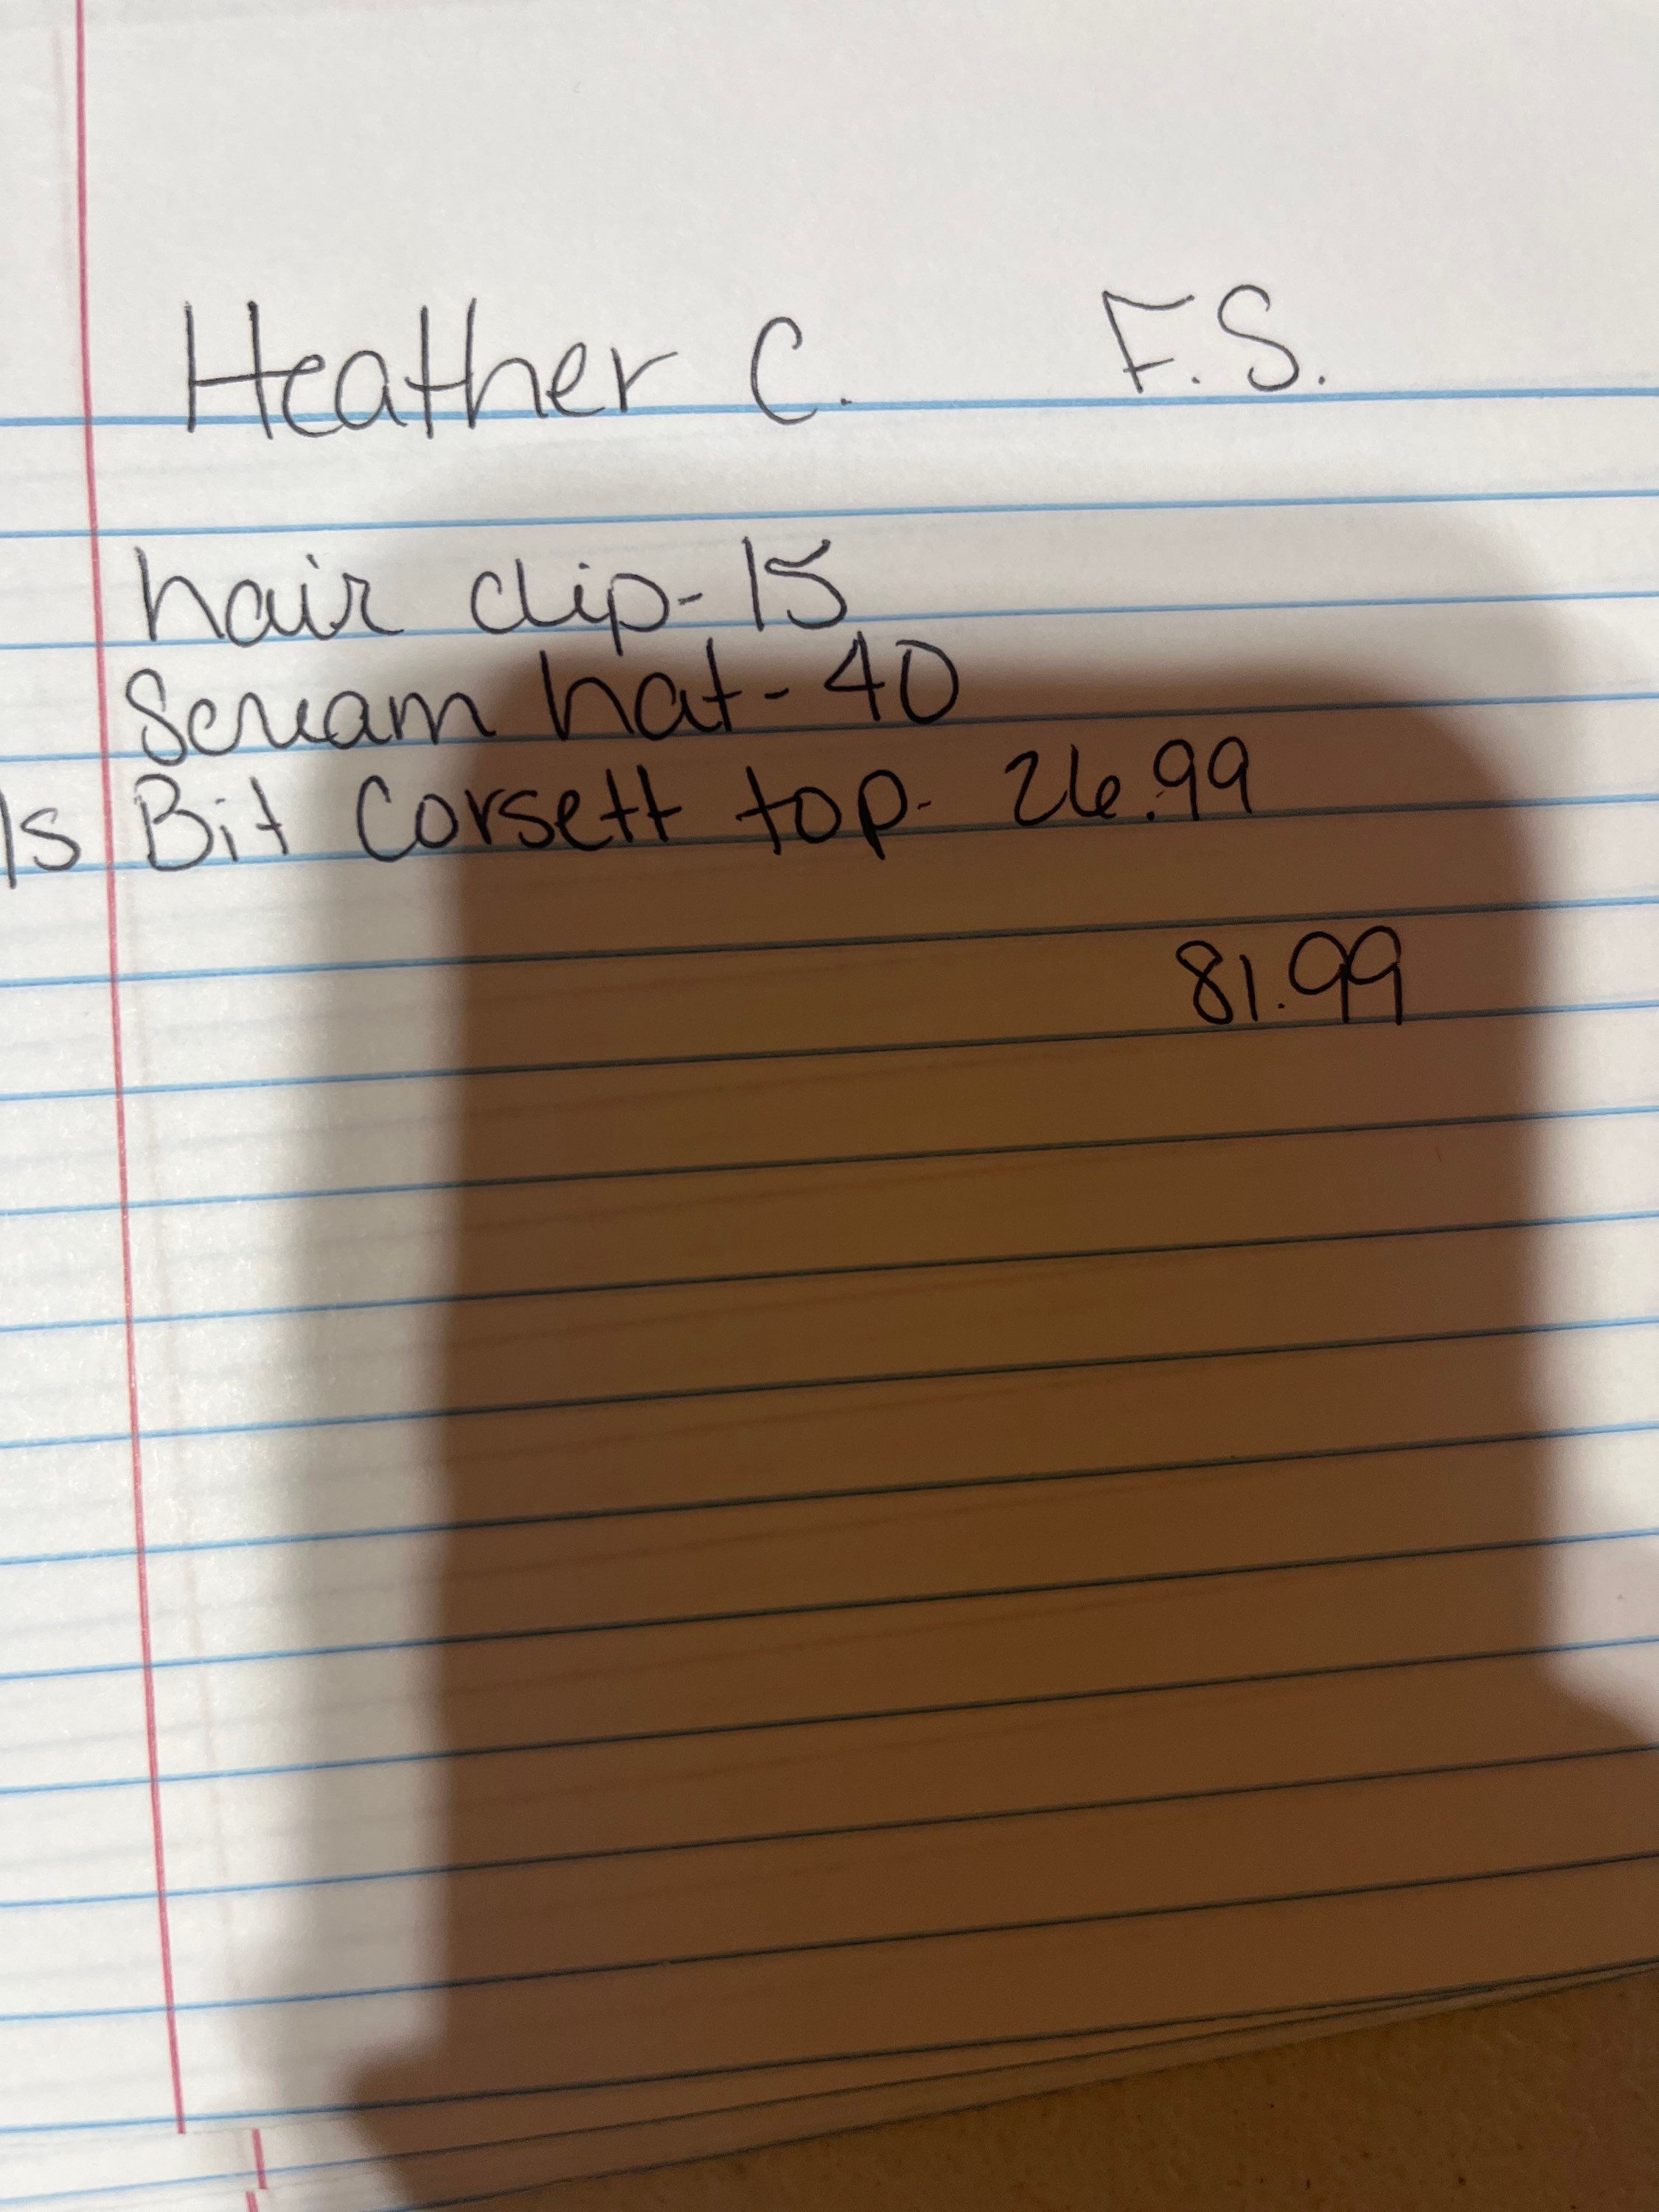 Heather C. F.S.
hair clip - 15
Scream hat - 40
1s Bit Corsett top - 26.99
81.99